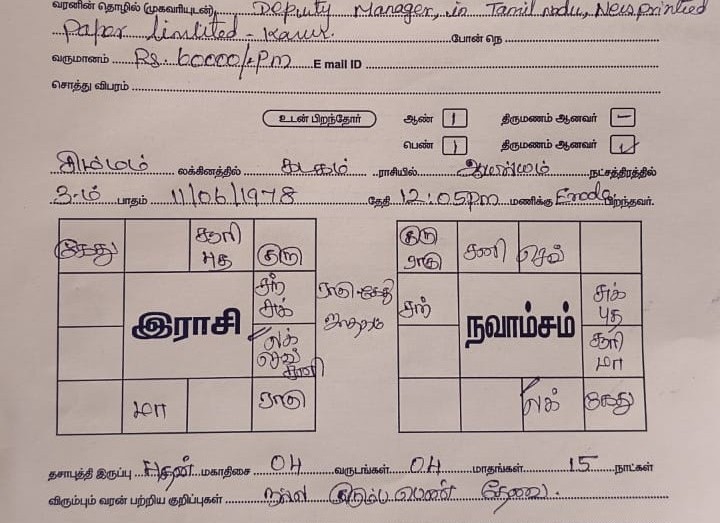 வரனின் தொழில் (முகவரியுடன்) Deputy Manager, in Tamil nadu, News printed
Paper limited - Karur. போன் நெ
வருமானம் Rs. 60000/-Pm E mail ID
சொத்து விபரம்
உடன் பிறந்தோர் ஆண் 1 திருமணம் ஆனவர் –
பெண் 1 திருமணம் ஆனவர் ✓
சிம்மம் லக்கினத்தில் கடகம் ராசியில் ஆயில்யம் நட்சத்திரத்தில்
3-ம் பாதம் 11/06/1978 தேதி 12:05pm மணிக்கு Erode பிறந்தவர்.
கேது சூரி புத குரு
சந் சுக்
ராகு-கேது ஜாதகம்
லக் செவ் சனி
மா ராகு
இராசி
குரு ராகு சனி செவ்
சந் சுக் புத
சூரி மா
லக் கேது
நவாம்சம்
தசாபுத்தி இருப்பு புதன் மகாதிசை 04 வருடங்கள் 04 மாதங்கள் 15 நாட்கள்
விரும்பும் வரன் பற்றிய குறிப்புகள் நல்ல குடும்ப பெண் தேவை.